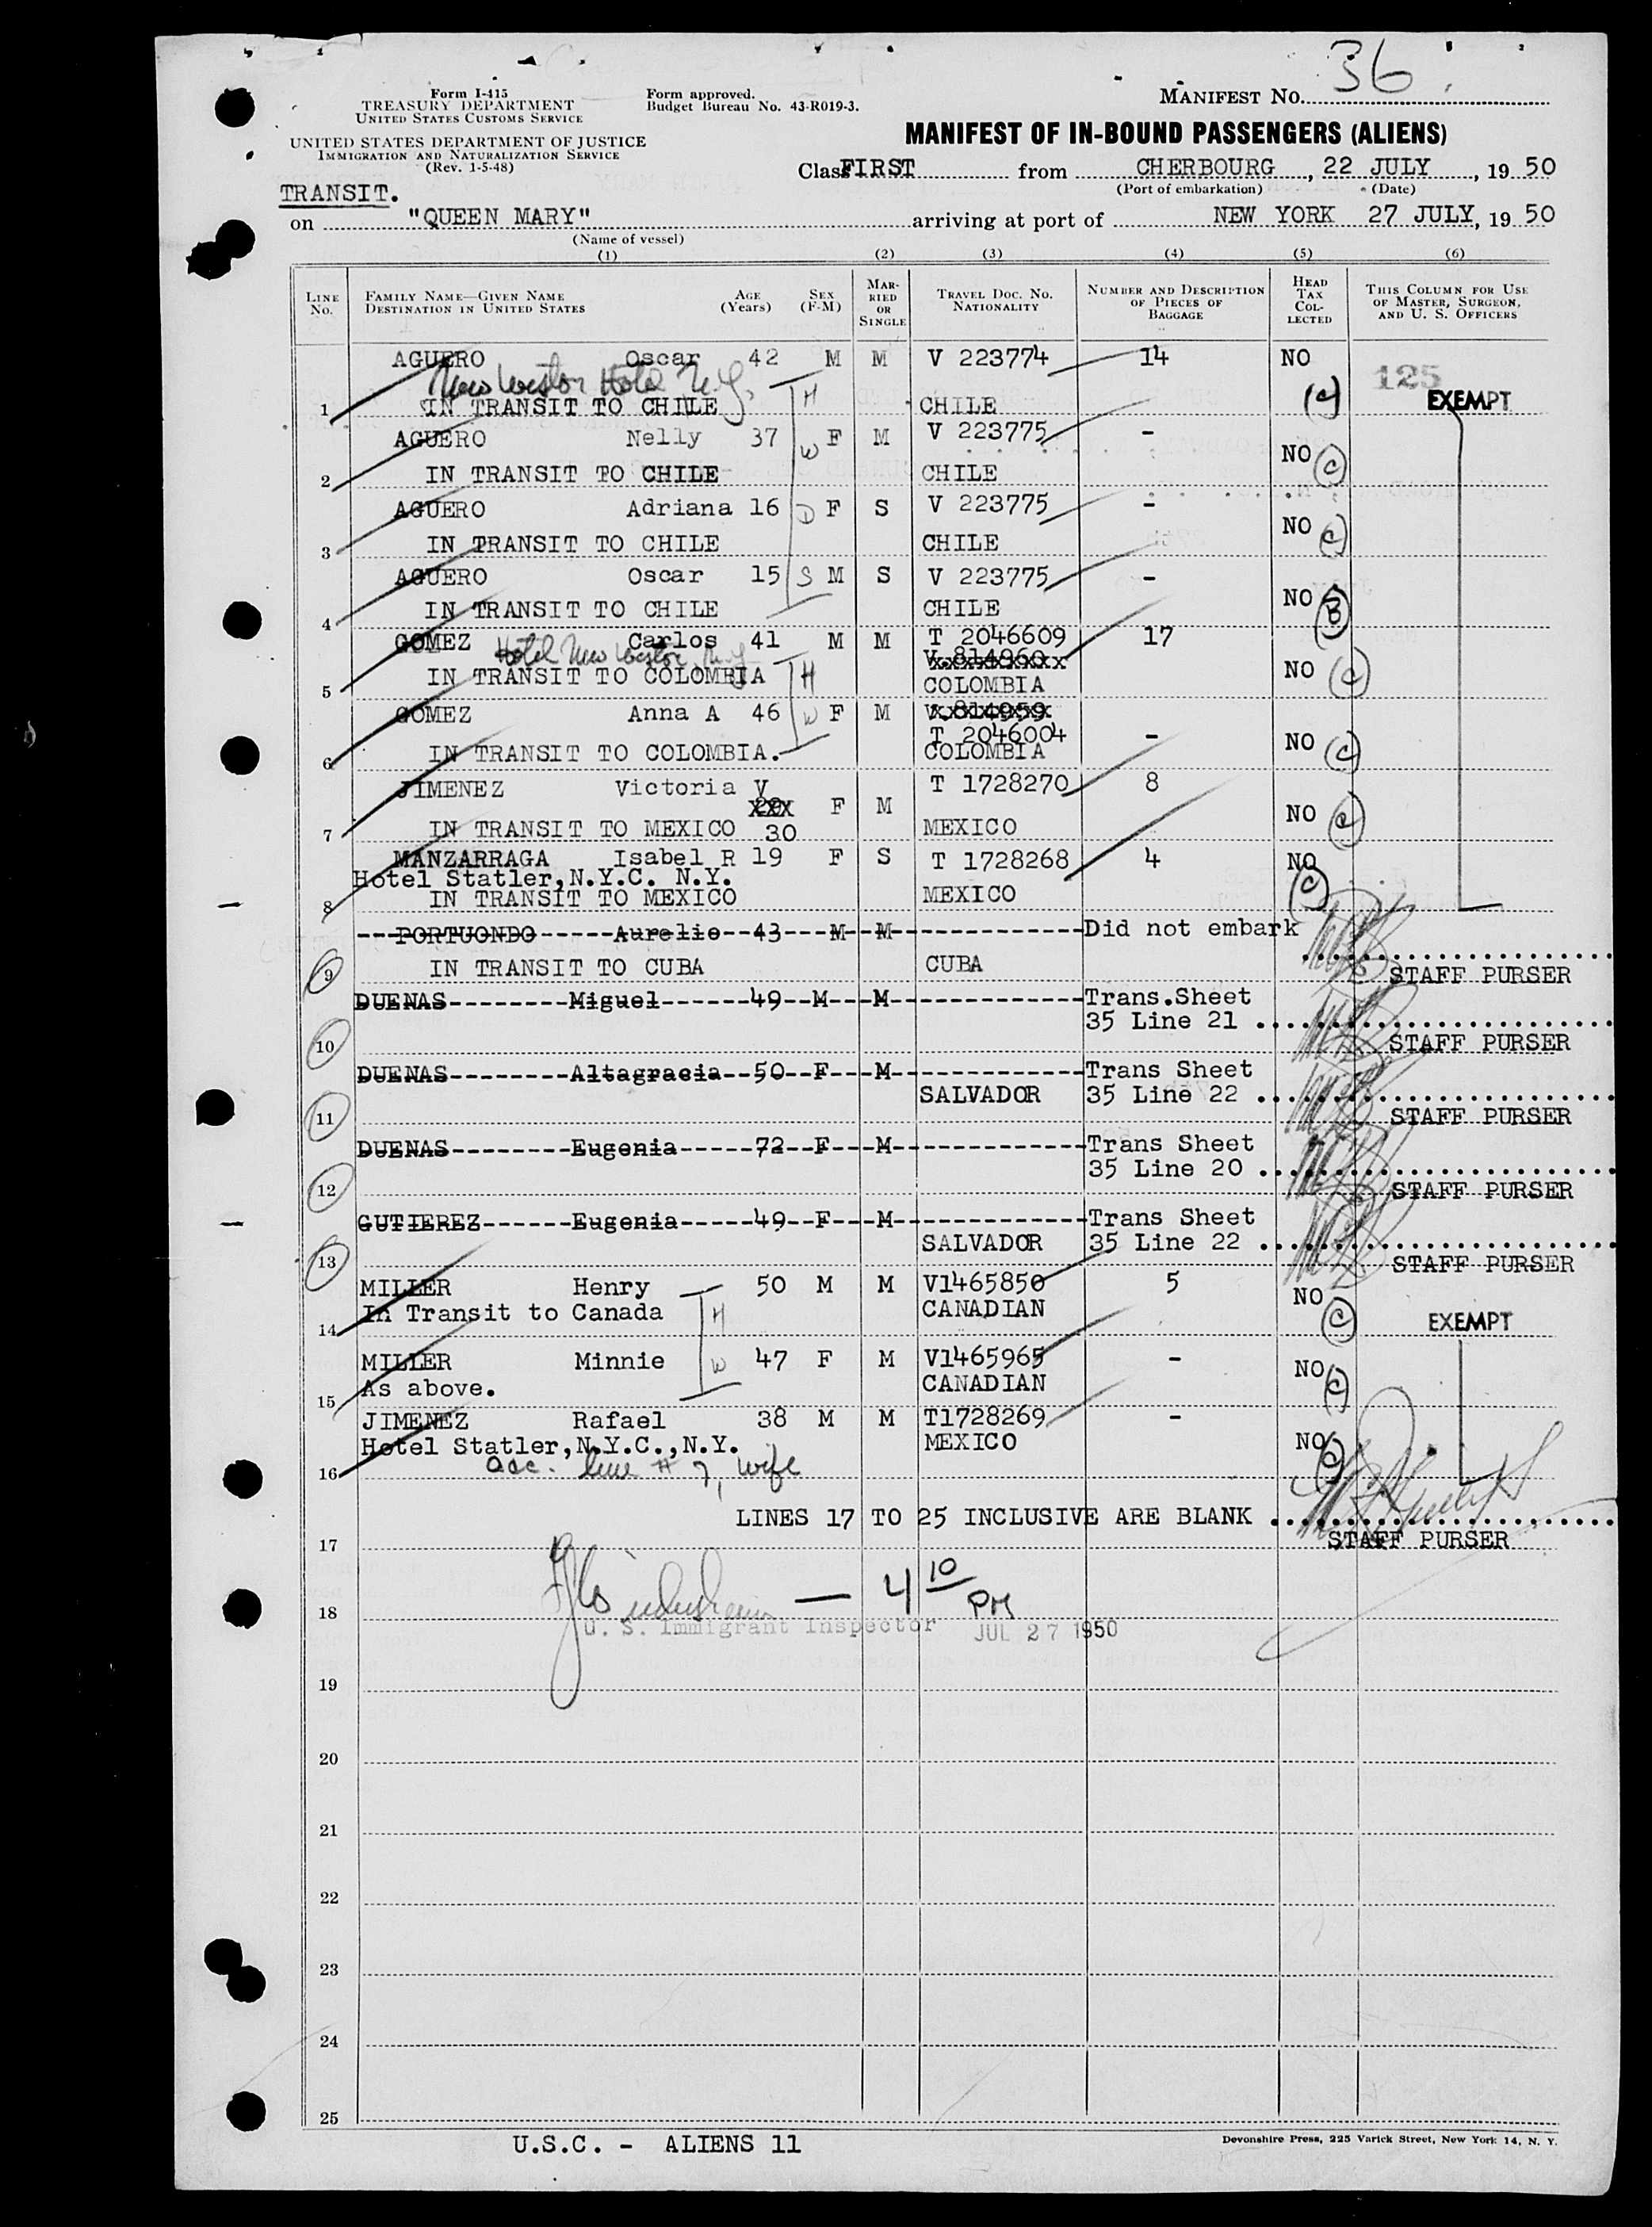 36
Form I-415
TREASURY DEPARTMENT
UNITED STATES CUSTOMS SERVICE
Form approved.
Budget Bureau No. 43-R019-3.
MANIFEST No.
UNITED STATES DEPARTMENT OF JUSTICE
IMMIGRATION AND NATURALIZATION SERVICE
(Rev. 1-5-48)
MANIFEST OF IN-BOUND PASSENGERS (ALIENS)
Class FIRST from CHERBOURG, 22 JULY, 19 50
(Port of embarkation) (Date)
TRANSIT.
on "QUEEN MARY" arriving at port of NEW YORK 27 JULY, 19 50
(Name of vessel)
(1) (2) (3) (4) (5) (6)
LINE No. FAMILY NAME—GIVEN NAME DESTINATION IN UNITED STATES AGE (Years) SEX (F-M) MARRIED OR SINGLE TRAVEL DOC. NO. NATIONALITY NUMBER AND DESCRIPTION OF PIECES OF BAGGAGE HEAD TAX COLLECTED THIS COLUMN FOR USE OF MASTER, SURGEON, AND U. S. OFFICERS
AGUERO Oscar 42 M M V 223774 14 NO 125
New Weston Hotel N.Y. H
1 IN TRANSIT TO CHILE CHILE (C) EXEMPT
AGUERO Nelly 37 W F M V 223775 - NO (C)
2 IN TRANSIT TO CHILE CHILE
AGUERO Adriana 16 D F S V 223775 - NO (C)
3 IN TRANSIT TO CHILE CHILE
AGUERO Oscar 15 S M S V 223775 - NO (B)
4 IN TRANSIT TO CHILE CHILE
GOMEZ Carlos 41 M M T 2046609 17
Hotel New Weston N.Y. V.814960
5 IN TRANSIT TO COLOMBIA H COLOMBIA NO (C)
GOMEZ Anna A 46 W F M V.814959
T 2046004 - NO (C)
6 IN TRANSIT TO COLOMBIA. COLOMBIA
JIMENEZ Victoria V F M T 1728270 8 NO (C)
7 IN TRANSIT TO MEXICO 30 MEXICO
MANZARRAGA Isabel R 19 F S T 1728268 4 NO (C)
Hotel Statler,N.Y.C. N.Y.
8 IN TRANSIT TO MEXICO MEXICO
---PORTUONDO-----Aurelio--43---M--M------------Did not embark
9 IN TRANSIT TO CUBA CUBA STAFF PURSER
DUENAS--------Miguel------49--M---M------------Trans.Sheet
35 Line 21
10 STAFF PURSER
DUENAS--------Altagracia--50--F---M------------Trans Sheet
SALVADOR 35 Line 22
11 STAFF PURSER
DUENAS--------Eugenia-----72--F---M------------Trans Sheet
35 Line 20
12 STAFF PURSER
GUTIEREZ------Eugenia-----49--F---M------------Trans Sheet
SALVADOR 35 Line 22
13 STAFF PURSER
MILLER Henry 50 M M V1465850 5 NO (C)
In Transit to Canada H CANADIAN
14 EXEMPT
MILLER Minnie W 47 F M V1465965 - NO (C)
As above. CANADIAN
15
JIMENEZ Rafael 38 M M T1728269 - NO (C)
Hotel Statler,N.Y.C.,N.Y. MEXICO
16 acc. line # 7, wife
LINES 17 TO 25 INCLUSIVE ARE BLANK
17 STAFF PURSER
— 4 10 PM
18
U. S. Immigrant Inspector JUL 27 1950
19
20
21
22
23
24
25
U.S.C. - ALIENS 11
Devonshire Press, 225 Varick Street, New York 14, N. Y.